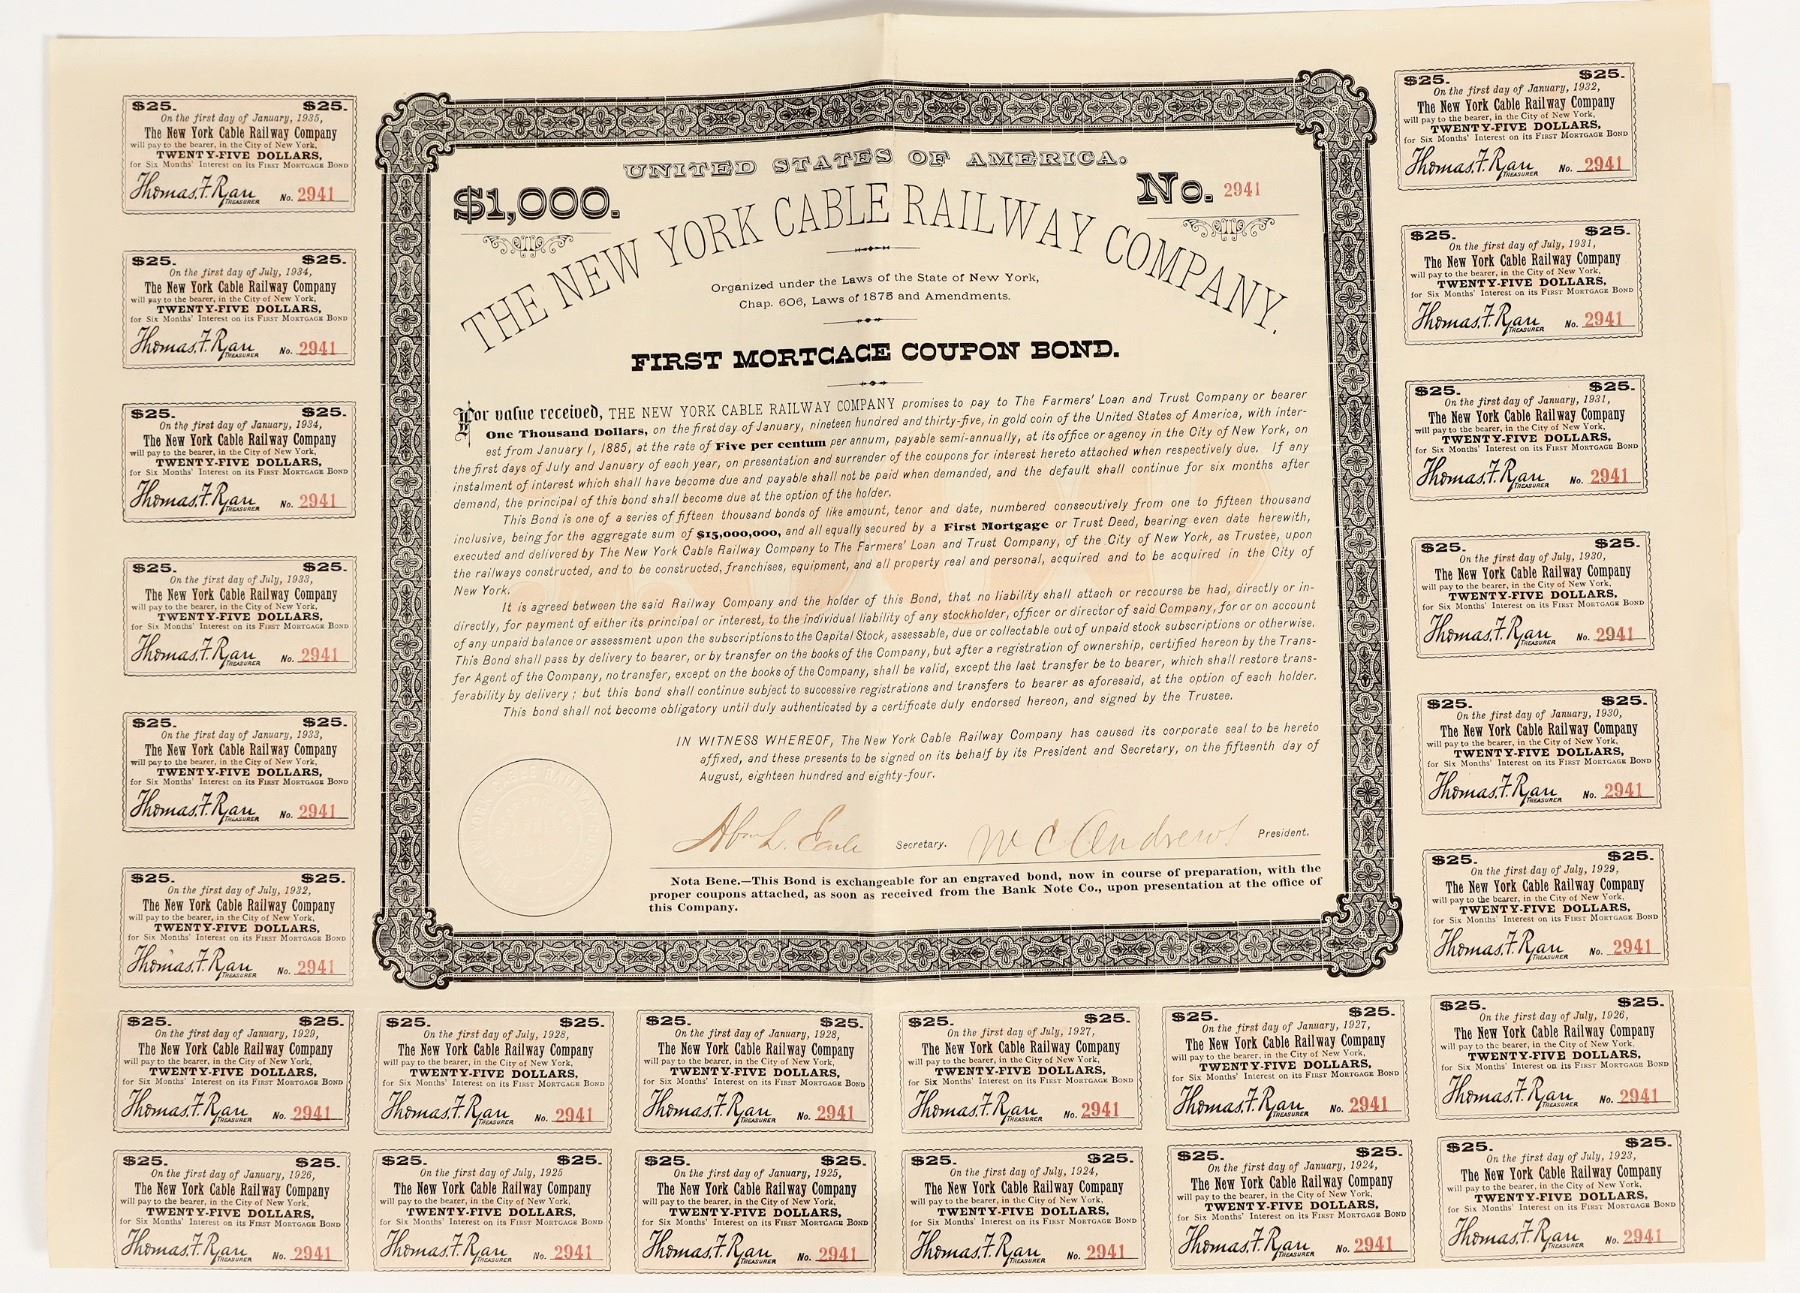 UNITED STATES OF AMERICA.
$1,000.
No. 2941
THE NEW YORK CABLE RAILWAY COMPANY.
Organized under the Laws of the State of New York,
Chap. 606, Laws of 1875 and Amendments.
FIRST MORTGAGE COUPON BOND.
For value received, THE NEW YORK CABLE RAILWAY COMPANY promises to pay to The Farmers' Loan and Trust Company or bearer
One Thousand Dollars, on the first day of January, nineteen hundred and thirty-five, in gold coin of the United States of America, with inter-
est from January 1, 1885, at the rate of Five per centum per annum, payable semi-annually, at its office or agency in the City of New York, on
the first days of July and January of each year, on presentation and surrender of the coupons for interest hereto attached when respectively due. If any
instalment of interest which shall have become due and payable shall not be paid when demanded, and the default shall continue for six months after
demand, the principal of this bond shall become due at the option of the holder.
This Bond is one of a series of fifteen thousand bonds of like amount, tenor and date, numbered consecutively from one to fifteen thousand
inclusive, being for the aggregate sum of $15,000,000, and all equally secured by a First Mortgage or Trust Deed, bearing even date herewith,
executed and delivered by The New York Cable Railway Company to The Farmers' Loan and Trust Company, of the City of New York, as Trustee, upon
the railways constructed, and to be constructed, franchises, equipment, and all property real and personal, acquired and to be acquired in the City of
New York.
It is agreed between the said Railway Company and the holder of this Bond, that no liability shall attach or recourse be had, directly or in-
directly, for payment of either its principal or interest, to the individual liability of any stockholder, officer or director of said Company, for or on account
of any unpaid balance or assessment upon the subscriptions to the Capital Stock, assessable, due or collectable out of unpaid stock subscriptions or otherwise.
This Bond shall pass by delivery to bearer, or by transfer on the books of the Company, but after a registration of ownership, certified hereon by the Trans-
fer Agent of the Company, no transfer, except on the books of the Company, shall be valid, except the last transfer be to bearer, which shall restore trans-
ferability by delivery; but this bond shall continue subject to successive registrations and transfers to bearer as aforesaid, at the option of each holder.
This bond shall not become obligatory until duly authenticated by a certificate duly endorsed hereon, and signed by the Trustee.
IN WITNESS WHEREOF, The New York Cable Railway Company has caused its corporate seal to be hereto
affixed, and these presents to be signed on its behalf by its President and Secretary, on the fifteenth day of
August, eighteen hundred and eighty-four.
Secretary. W C Andrews President.
Nota Bene.—This Bond is exchangeable for an engraved bond, now in course of preparation, with the
proper coupons attached, as soon as received from the Bank Note Co., upon presentation at the office of
this Company.
$25. $25.
On the first day of January, 1935,
The New York Cable Railway Company
will pay to the bearer, in the City of New York,
TWENTY-FIVE DOLLARS,
for Six Months' Interest on its FIRST MORTGAGE BOND
Thomas F. Ryan TREASURER No. 2941
$25. $25.
On the first day of July, 1934,
The New York Cable Railway Company
will pay to the bearer, in the City of New York,
TWENTY-FIVE DOLLARS,
for Six Months' Interest on its FIRST MORTGAGE BOND
Thomas F. Ryan TREASURER No. 2941
$25. $25.
On the first day of January, 1934,
The New York Cable Railway Company
will pay to the bearer, in the City of New York,
TWENTY-FIVE DOLLARS,
for Six Months' Interest on its FIRST MORTGAGE BOND
Thomas F. Ryan TREASURER No. 2941
$25. $25.
On the first day of July, 1933,
The New York Cable Railway Company
will pay to the bearer, in the City of New York,
TWENTY-FIVE DOLLARS,
for Six Months' Interest on its FIRST MORTGAGE BOND
Thomas F. Ryan TREASURER No. 2941
$25. $25.
On the first day of January, 1933,
The New York Cable Railway Company
will pay to the bearer, in the City of New York,
TWENTY-FIVE DOLLARS,
for Six Months' Interest on its FIRST MORTGAGE BOND
Thomas F. Ryan TREASURER No. 2941
$25. $25.
On the first day of July, 1932,
The New York Cable Railway Company
will pay to the bearer, in the City of New York,
TWENTY-FIVE DOLLARS,
for Six Months' Interest on its FIRST MORTGAGE BOND
Thomas F. Ryan TREASURER No. 2941
$25. $25.
On the first day of January, 1932,
The New York Cable Railway Company
will pay to the bearer, in the City of New York,
TWENTY-FIVE DOLLARS,
for Six Months' Interest on its FIRST MORTGAGE BOND
Thomas F. Ryan TREASURER No. 2941
$25. $25.
On the first day of July, 1931,
The New York Cable Railway Company
will pay to the bearer, in the City of New York,
TWENTY-FIVE DOLLARS,
for Six Months' Interest on its FIRST MORTGAGE BOND
Thomas F. Ryan TREASURER No. 2941
$25. $25.
On the first day of January, 1931,
The New York Cable Railway Company
will pay to the bearer, in the City of New York,
TWENTY-FIVE DOLLARS,
for Six Months' Interest on its FIRST MORTGAGE BOND
Thomas F. Ryan TREASURER No. 2941
$25. $25.
On the first day of July, 1930,
The New York Cable Railway Company
will pay to the bearer, in the City of New York,
TWENTY-FIVE DOLLARS,
for Six Months' Interest on its FIRST MORTGAGE BOND
Thomas F. Ryan TREASURER No. 2941
$25. $25.
On the first day of January, 1930,
The New York Cable Railway Company
will pay to the bearer, in the City of New York,
TWENTY-FIVE DOLLARS,
for Six Months' Interest on its FIRST MORTGAGE BOND
Thomas F. Ryan TREASURER No. 2941
$25. $25.
On the first day of July, 1929,
The New York Cable Railway Company
will pay to the bearer, in the City of New York,
TWENTY-FIVE DOLLARS,
for Six Months' Interest on its FIRST MORTGAGE BOND
Thomas F. Ryan TREASURER No. 2941
$25. $25.
On the first day of January, 1929,
The New York Cable Railway Company
will pay to the bearer, in the City of New York,
TWENTY-FIVE DOLLARS,
for Six Months' Interest on its FIRST MORTGAGE BOND
Thomas F. Ryan TREASURER No. 2941
$25. $25.
On the first day of July, 1928,
The New York Cable Railway Company
will pay to the bearer, in the City of New York,
TWENTY-FIVE DOLLARS,
for Six Months' Interest on its FIRST MORTGAGE BOND
Thomas F. Ryan TREASURER No. 2941
$25. $25.
On the first day of January, 1928,
The New York Cable Railway Company
will pay to the bearer, in the City of New York,
TWENTY-FIVE DOLLARS,
for Six Months' Interest on its FIRST MORTGAGE BOND
Thomas F. Ryan TREASURER No. 2941
$25. $25.
On the first day of July, 1927,
The New York Cable Railway Company
will pay to the bearer, in the City of New York,
TWENTY-FIVE DOLLARS,
for Six Months' Interest on its FIRST MORTGAGE BOND
Thomas F. Ryan TREASURER No. 2941
$25. $25.
On the first day of January, 1927,
The New York Cable Railway Company
will pay to the bearer, in the City of New York,
TWENTY-FIVE DOLLARS,
for Six Months' Interest on its FIRST MORTGAGE BOND
Thomas F. Ryan TREASURER No. 2941
$25. $25.
On the first day of July, 1926,
The New York Cable Railway Company
will pay to the bearer, in the City of New York,
TWENTY-FIVE DOLLARS,
for Six Months' Interest on its FIRST MORTGAGE BOND
Thomas F. Ryan TREASURER No. 2941
$25. $25.
On the first day of January, 1926,
The New York Cable Railway Company
will pay to the bearer, in the City of New York,
TWENTY-FIVE DOLLARS,
for Six Months' Interest on its FIRST MORTGAGE BOND
Thomas F. Ryan TREASURER No. 2941
$25. $25.
On the first day of July, 1925
The New York Cable Railway Company
will pay to the bearer, in the City of New York,
TWENTY-FIVE DOLLARS,
for Six Months' Interest on its FIRST MORTGAGE BOND
Thomas F. Ryan TREASURER No. 2941
$25. $25.
On the first day of January, 1925,
The New York Cable Railway Company
will pay to the bearer, in the City of New York,
TWENTY-FIVE DOLLARS,
for Six Months' Interest on its FIRST MORTGAGE BOND
Thomas F. Ryan TREASURER No. 2941
$25. $25.
On the first day of July, 1924,
The New York Cable Railway Company
will pay to the bearer, in the City of New York,
TWENTY-FIVE DOLLARS,
for Six Months' Interest on its FIRST MORTGAGE BOND
Thomas F. Ryan TREASURER No. 2941
$25. $25.
On the first day of January, 1924,
The New York Cable Railway Company
will pay to the bearer, in the City of New York,
TWENTY-FIVE DOLLARS,
for Six Months' Interest on its FIRST MORTGAGE BOND
Thomas F. Ryan TREASURER No. 2941
$25. $25.
On the first day of July, 1923,
The New York Cable Railway Company
will pay to the bearer, in the City of New York,
TWENTY-FIVE DOLLARS,
for Six Months' Interest on its FIRST MORTGAGE BOND
Thomas F. Ryan TREASURER No. 2941